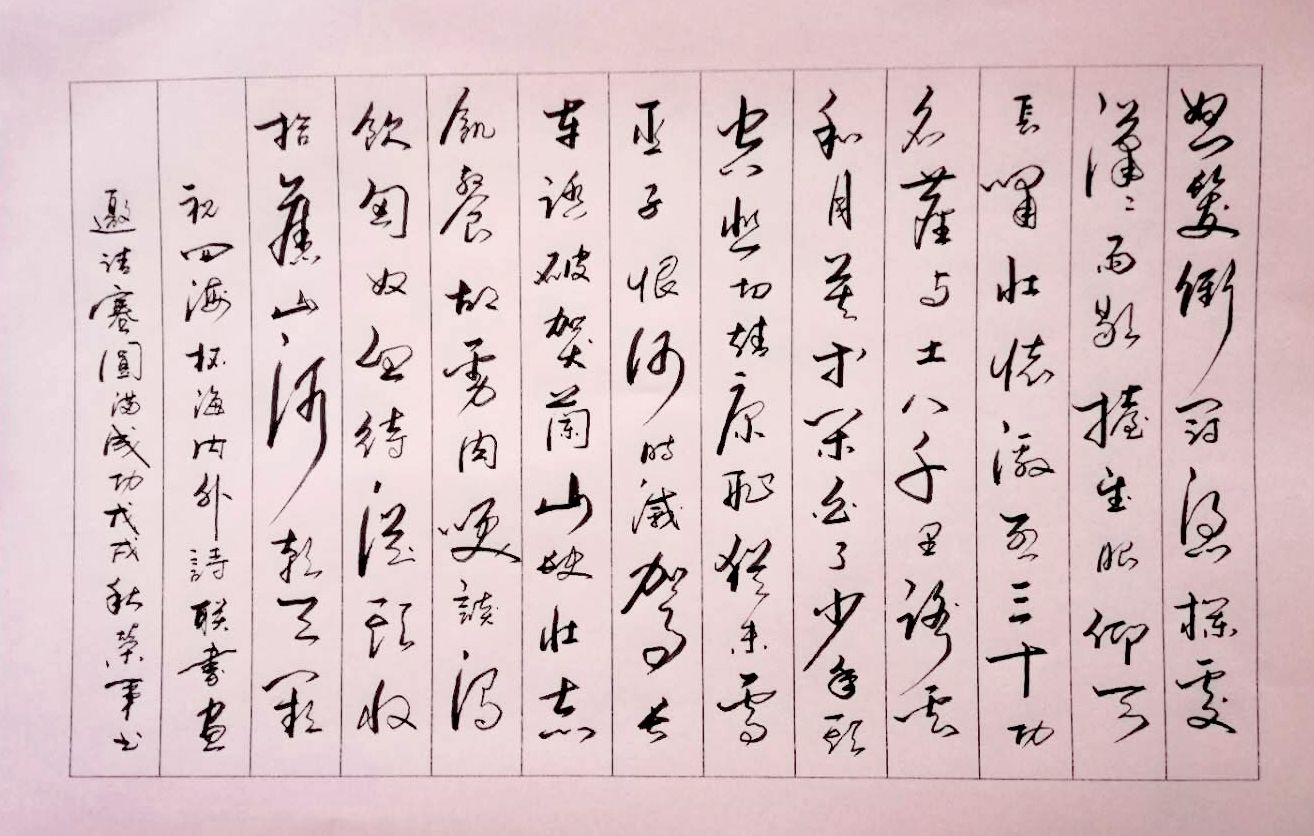 怒髮衝冠憑欄處
瀟瀟雨歇擡望眼仰天
長嘯壯懷激烈三十功
名塵与土八千里路雲
和月莫等閑白了少年頭
空悲切靖康耻猶未雪
臣子恨何時滅駕長
車踏破賀蘭山缺壯志
飢餐胡虜肉笑談渴
飲匈奴血待從頭收
拾舊山河朝天闕
祝四海杯海内外詩聯書畫
邀請賽圓滿成功戊戌秋榮书